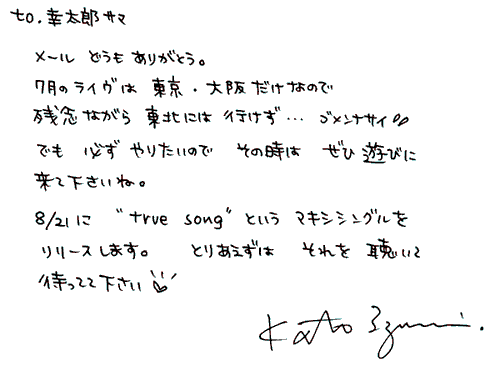 to. 幸太郎サマ
メール どうも ありがとう。
7月のライヴは 東京・大阪だけなので
残念ながら 東北には 行けず… ゴメンナサイ
でも 必ず やりたいので その時は ぜひ 遊びに
来て下さいね。
8/21に "true song" という マキシシングルを
リリースします。 とりあえずは それを 聴いて
待ってて下さい♡
Kato Izumi.